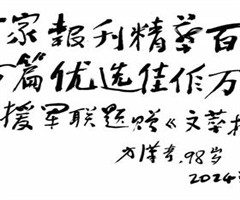 家報刊精萃百
篇优选佳作万
援军联题赠《文萃报
方汉奇,98岁
2024